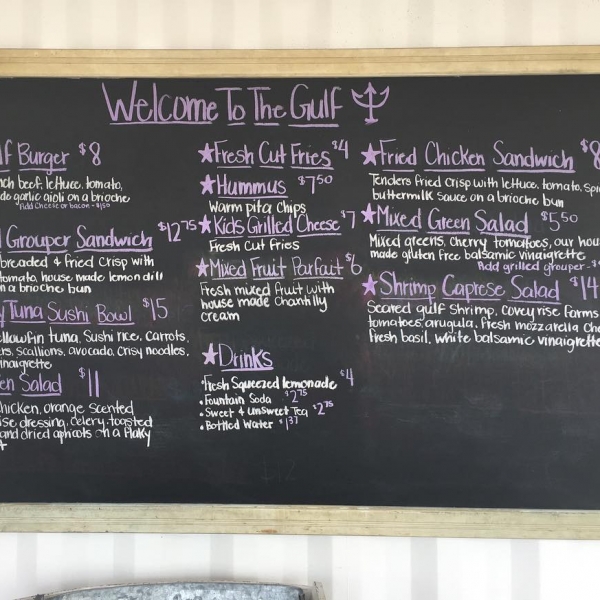 Welcome To The Gulf
lf Burger $8
nch beef, lettuce, tomato,
de garlic aioli on a brioche
Add cheese or bacon - $1.50
Grouper Sandwich $12.75
breaded & fried crisp with
tomato, house made lemon dill
n a brioche bun
Tuna Sushi Bowl $15
ellowfin tuna, Sushi rice, carrots,
ers, scallions, avocado, crisy noodles,
vinaigrette
en Salad $11
chicken, orange scented
ise dressing, celery, toasted
and dried apricots on a flaky
t
★Fresh Cut Fries $4
★Hummus $7.50
Warm pita chips
★Kids Grilled Cheese $7
Fresh cut fries
★Mixed Fruit Parfait $6
Fresh mixed fruit with
house made chantilly
cream
★Drinks
•Fresh Squeezed lemonade $4
•Fountain Soda $2.75
•Sweet & unsweet Tea $2.75
•Bottled Water $1.37
★Fried Chicken Sandwich $8
Tenders fried crisp with lettuce, tomato, spi
buttermilk sauce on a brioche bun
★Mixed Green Salad $5.50
Mixed greens, cherry tomatoes, our hou
made gluten free balsamic vinaigrette
Add grilled grouper - $
★Shrimp Caprese Salad $14
Seared gulf shrimp, covey rise farms
tomatoes, arugula, fresh mozzarella che
fresh basil, white balsamic vinaigrette